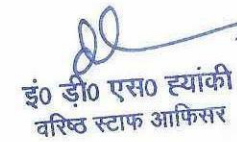 इं0 डी0 एस0 ह्यांकी
वरिष्ठ स्टाफ आफिसर